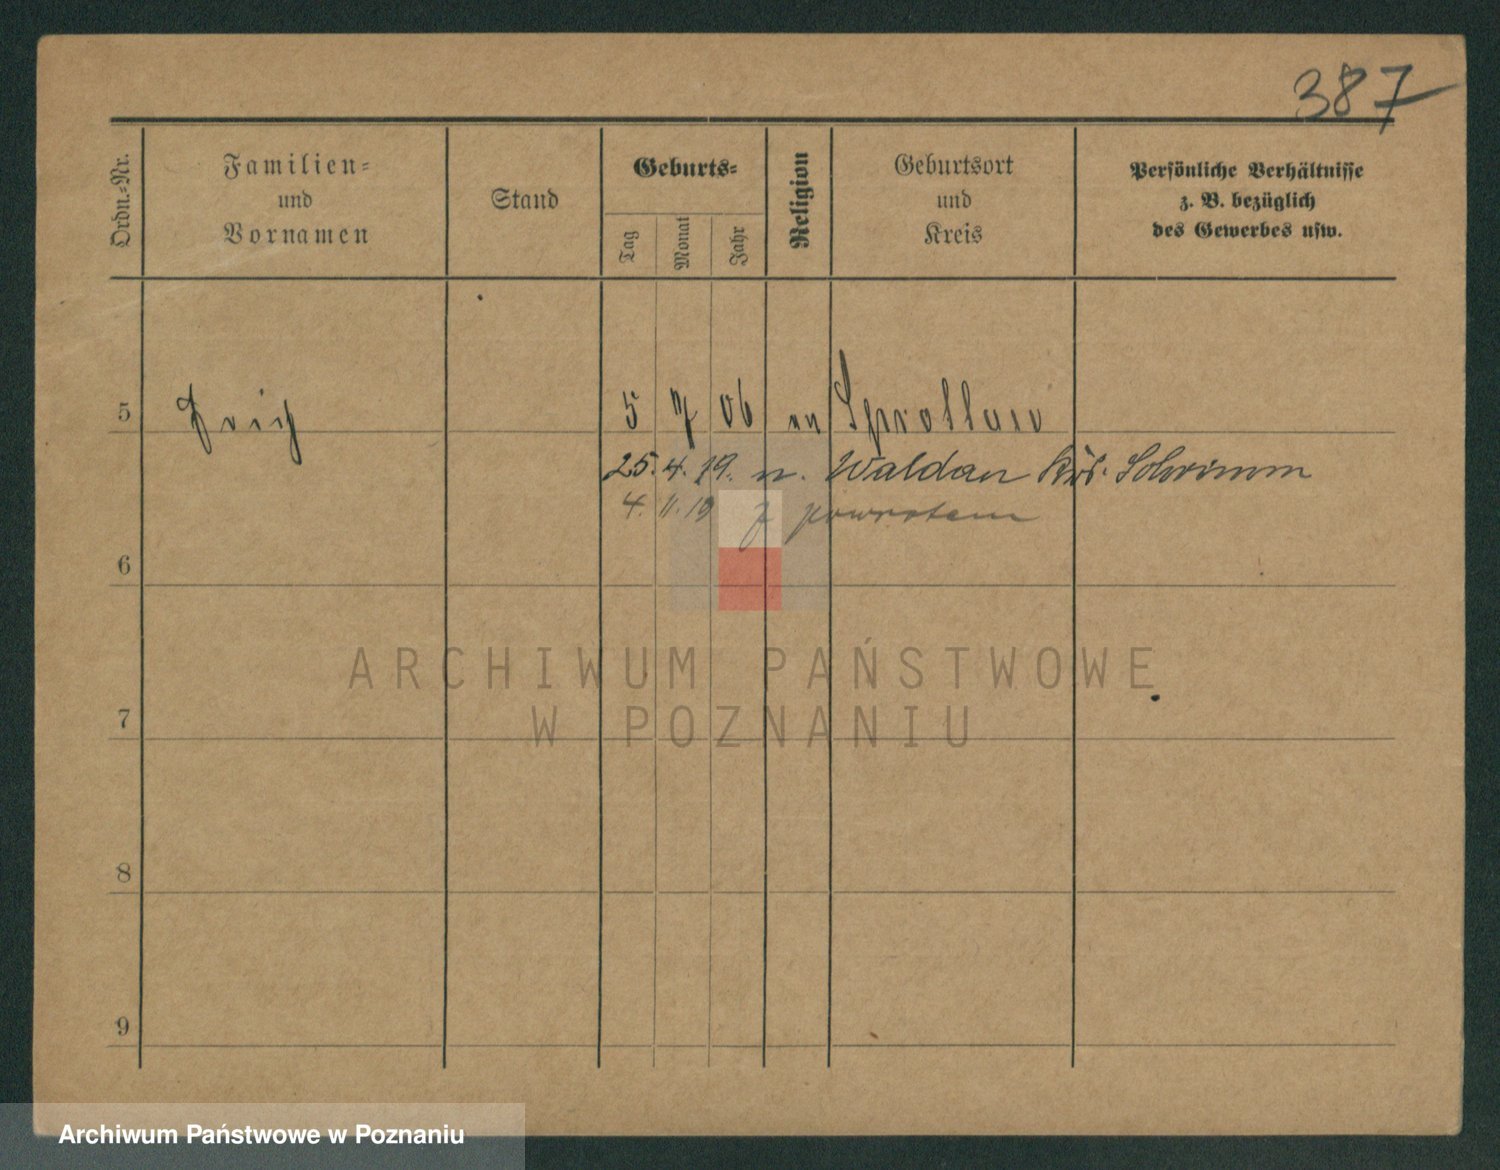 387
Ordn.-Nr.
Familien-
und
Vornamen
Stand
Geburts-
Tag
Monat
Jahr
Religion
Geburtsort
und
Kreis
Persönliche Verhältnisse
z. B. bezüglich
des Gewerbes usw.
5 Erich 5 7 06 ev Sprottau
25. 4. 19. n. Waldau Krs. Schrimm
4. 11. 19 z powrotem
6
ARCHIWUM PAŃSTWOWE
7
W POZNANIU
8
9
Archiwum Państwowe w Poznaniu